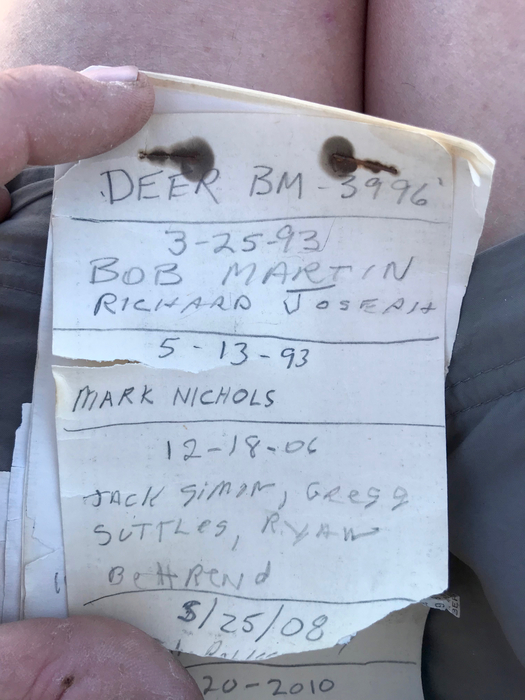 DEER BM - 3996'
3-25-93
BOB MARTIN
RICHARD JOSEPH
5-13-93
MARK NICHOLS
12-18-06
JACK SIMON, GREGG
SUTTLES, RYAN
BEHREND
/25/08
20-2010